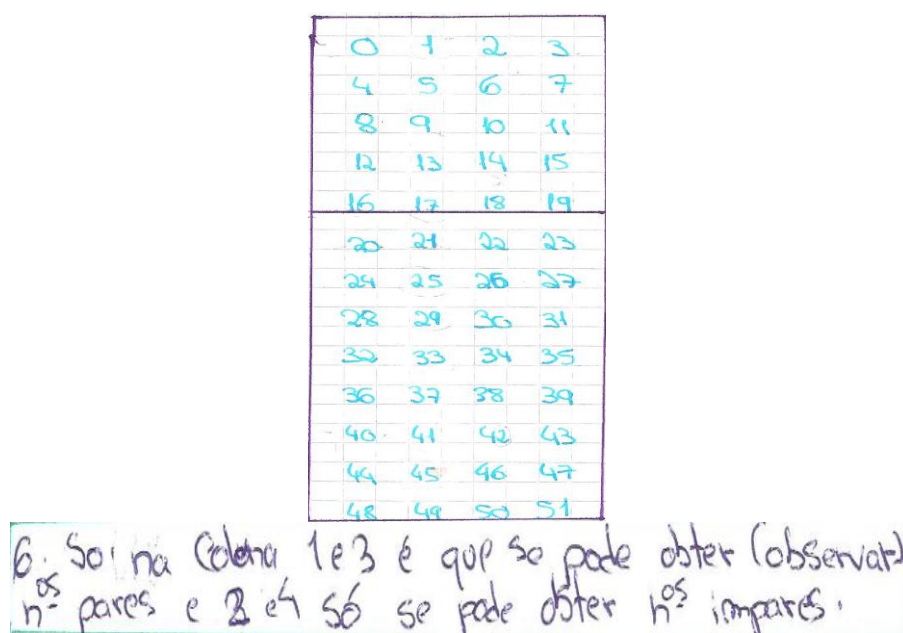 0 1 2 3
4 5 6 7
8 9 10 11
12 13 14 15
16 17 18 19
20 21 22 23
24 25 26 27
28 29 30 31
32 33 34 35
36 37 38 39
40 41 42 43
44 45 46 47
48 49 50 51
6. So na Coluna 1 e 3 é que se pode obter (observar)
nºs pares e 2 e 4 só se pode obter nºs impares.